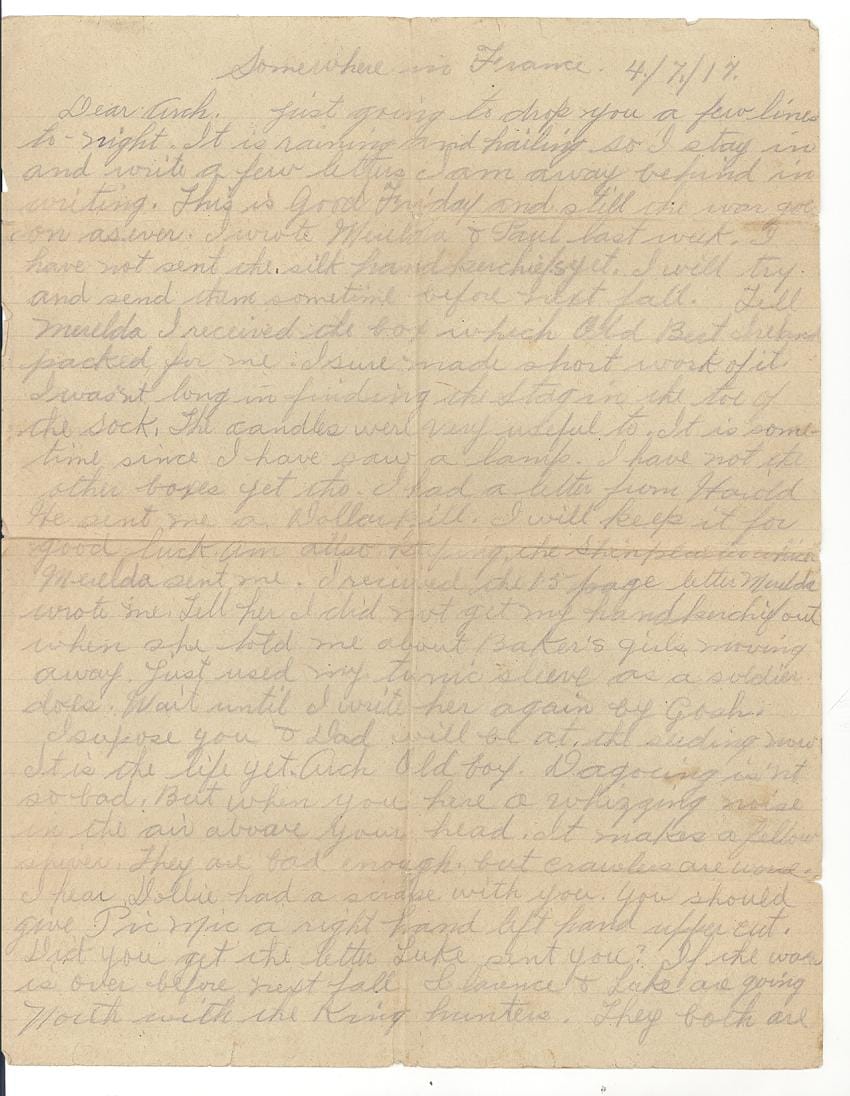 Somewhere in France. 4/7/17.
Dear Arch. Just going to drop you a few lines
to-night. It is raining and hailing so I stay in
and write a few letters I am away behind in
writing. This is Good Friday and still the war goes
on as ever. I wrote Merelda & Paul last week. I
have not sent the silk handkerchiefs yet. I will try
and send them sometime before next fall. Tell
Merelda I received the box which Old Bert Ireland
packed for me. I sure made short work of it
I wasn't long in finding the Stag in the toe of
the sock. The candles were very useful to. It is some-
time since I have saw a lamp. I have not the
other boxes yet tho. I had a letter from Harold
He sent me a Dollar bill. I will keep it for
good luck am allso keeping the
Merelda sent me. I received the 15 page letter Merelda
wrote me. Tell her I did not get my handkerchif out
when she told me about Baker's girls moving
away. Just used my tunic sleeve as a soldier
does. Wait until I write her again by Gosh.
I supose you & Dad will be at the seeding now
It is the life yet. Arch Old boy. Dagoing is'nt
so bad. But when you here a whizzing noise
in the air abovve your head. It makes a fellow
shiver. They are bad enough. but crawlers are worse.
I hear Dollie had a scrape with you. You should
give Pic Mic a right hand left hand upper cut.
Did you get the letter Luke sent you? If the war
is over before next fall Clarence & Luke are going
North with the King hunters. They both are